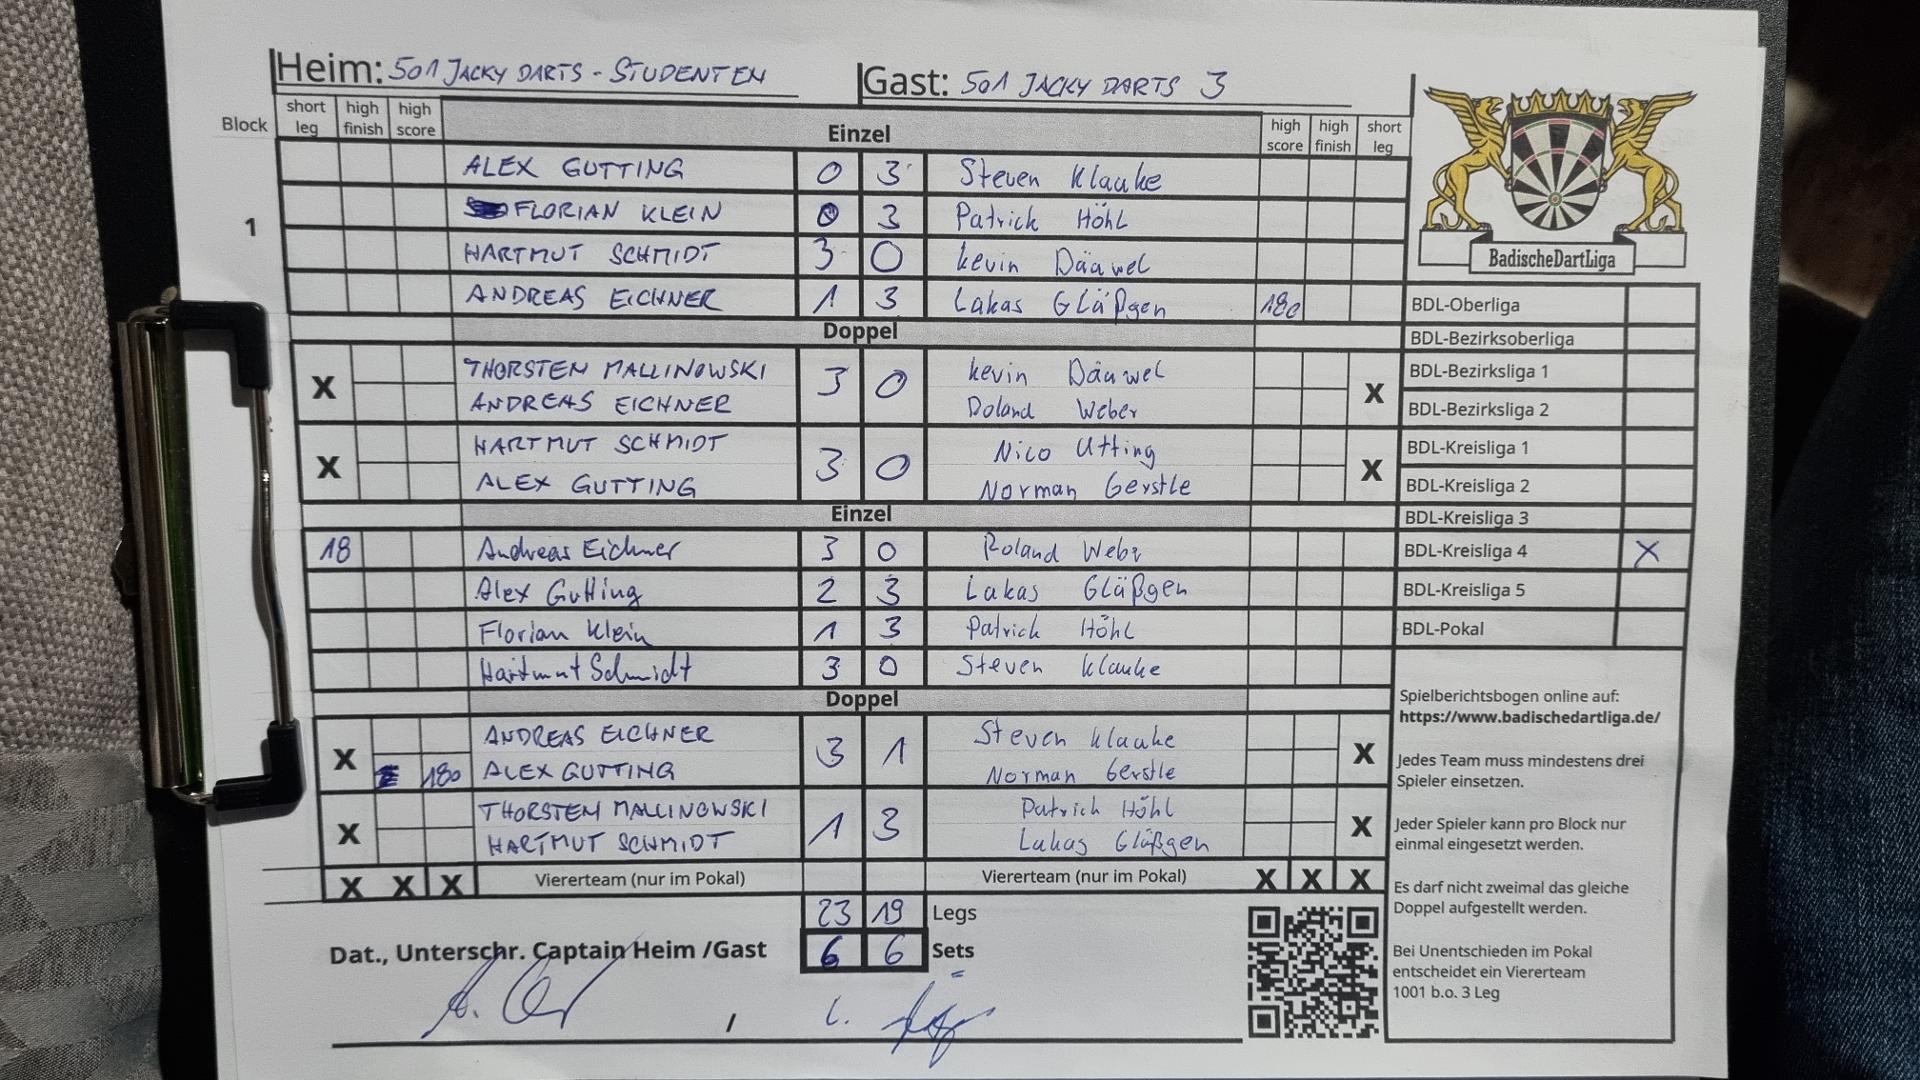 Heim: 501 JACKY DARTS - STUDENTEN Gast: 501 JACKY DARTS 3
Block short leg high finish high score Einzel high score high finish short leg
1
ALEX GUTTING 0 3 Steven Klauke
FLORIAN KLEIN 0 3 Patrick Höhl
HARTMUT SCHMIDT 3 0 Kevin Däuwel
ANDREAS EICHNER 1 3 Lukas Gläßgen 180
Doppel
X THORSTEN MALLINOWSKI 3 0 Kevin Däuwel X
ANDREAS EICHNER Roland Weber
X HARTMUT SCHMIDT 3 0 Nico Utting X
ALEX GUTTING Norman Gerstle
Einzel
18 Andreas Eichner 3 0 Roland Weber
Alex Gutting 2 3 Lukas Gläßgen
Florian Klein 1 3 Patrick Höhl
Hartmut Schmidt 3 0 Steven Klauke
Doppel
X ANDREAS EICHNER 3 1 Steven Klauke X
180 ALEX GUTTING Norman Gerstle
X THORSTEN MALLINOWSKI 1 3 Patrick Höhl X
HARTMUT SCHMIDT Lukas Gläßgen
X X X Viererteam (nur im Pokal) Viererteam (nur im Pokal) X X X
23 19 Legs
Dat., Unterschr. Captain Heim /Gast 6 6 Sets
/
BadischeDartLiga
BDL-Oberliga
BDL-Bezirksoberliga
BDL-Bezirksliga 1
BDL-Bezirksliga 2
BDL-Kreisliga 1
BDL-Kreisliga 2
BDL-Kreisliga 3
BDL-Kreisliga 4 X
BDL-Kreisliga 5
BDL-Pokal
Spielberichtsbogen online auf:
https://www.badischedartliga.de/
Jedes Team muss mindestens drei
Spieler einsetzen.
Jeder Spieler kann pro Block nur
einmal eingesetzt werden.
Es darf nicht zweimal das gleiche
Doppel aufgestellt werden.
Bei Unentschieden im Pokal
entscheidet ein Viererteam
1001 b.o. 3 Leg